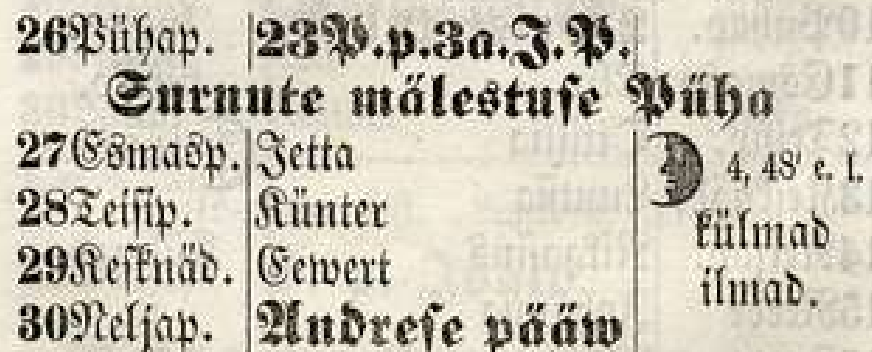 26 Pühap. 23 P.p.3a.J.P.
Surnute mälestuse Püha
27 Esmasp. Jetta 4, 48' e. l.
28 Teisip. Künter külmad
29 Kesknäd. Eewert ilmad.
30 Neljap. Andrese pääw